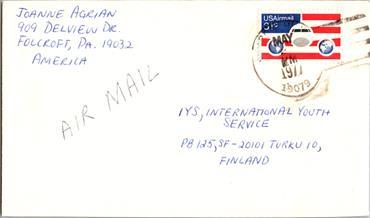 JOANNE AGRIAN
909 DELVIEW DR.
FOLCROFT, PA. 19032
AMERICA
USAirmail
31c
MAY
PM
1977
19079
AIR MAIL
IYS, INTERNATIONAL YOUTH
SERVICE
PB 125, SF-20101 TURKU 10,
FINLAND